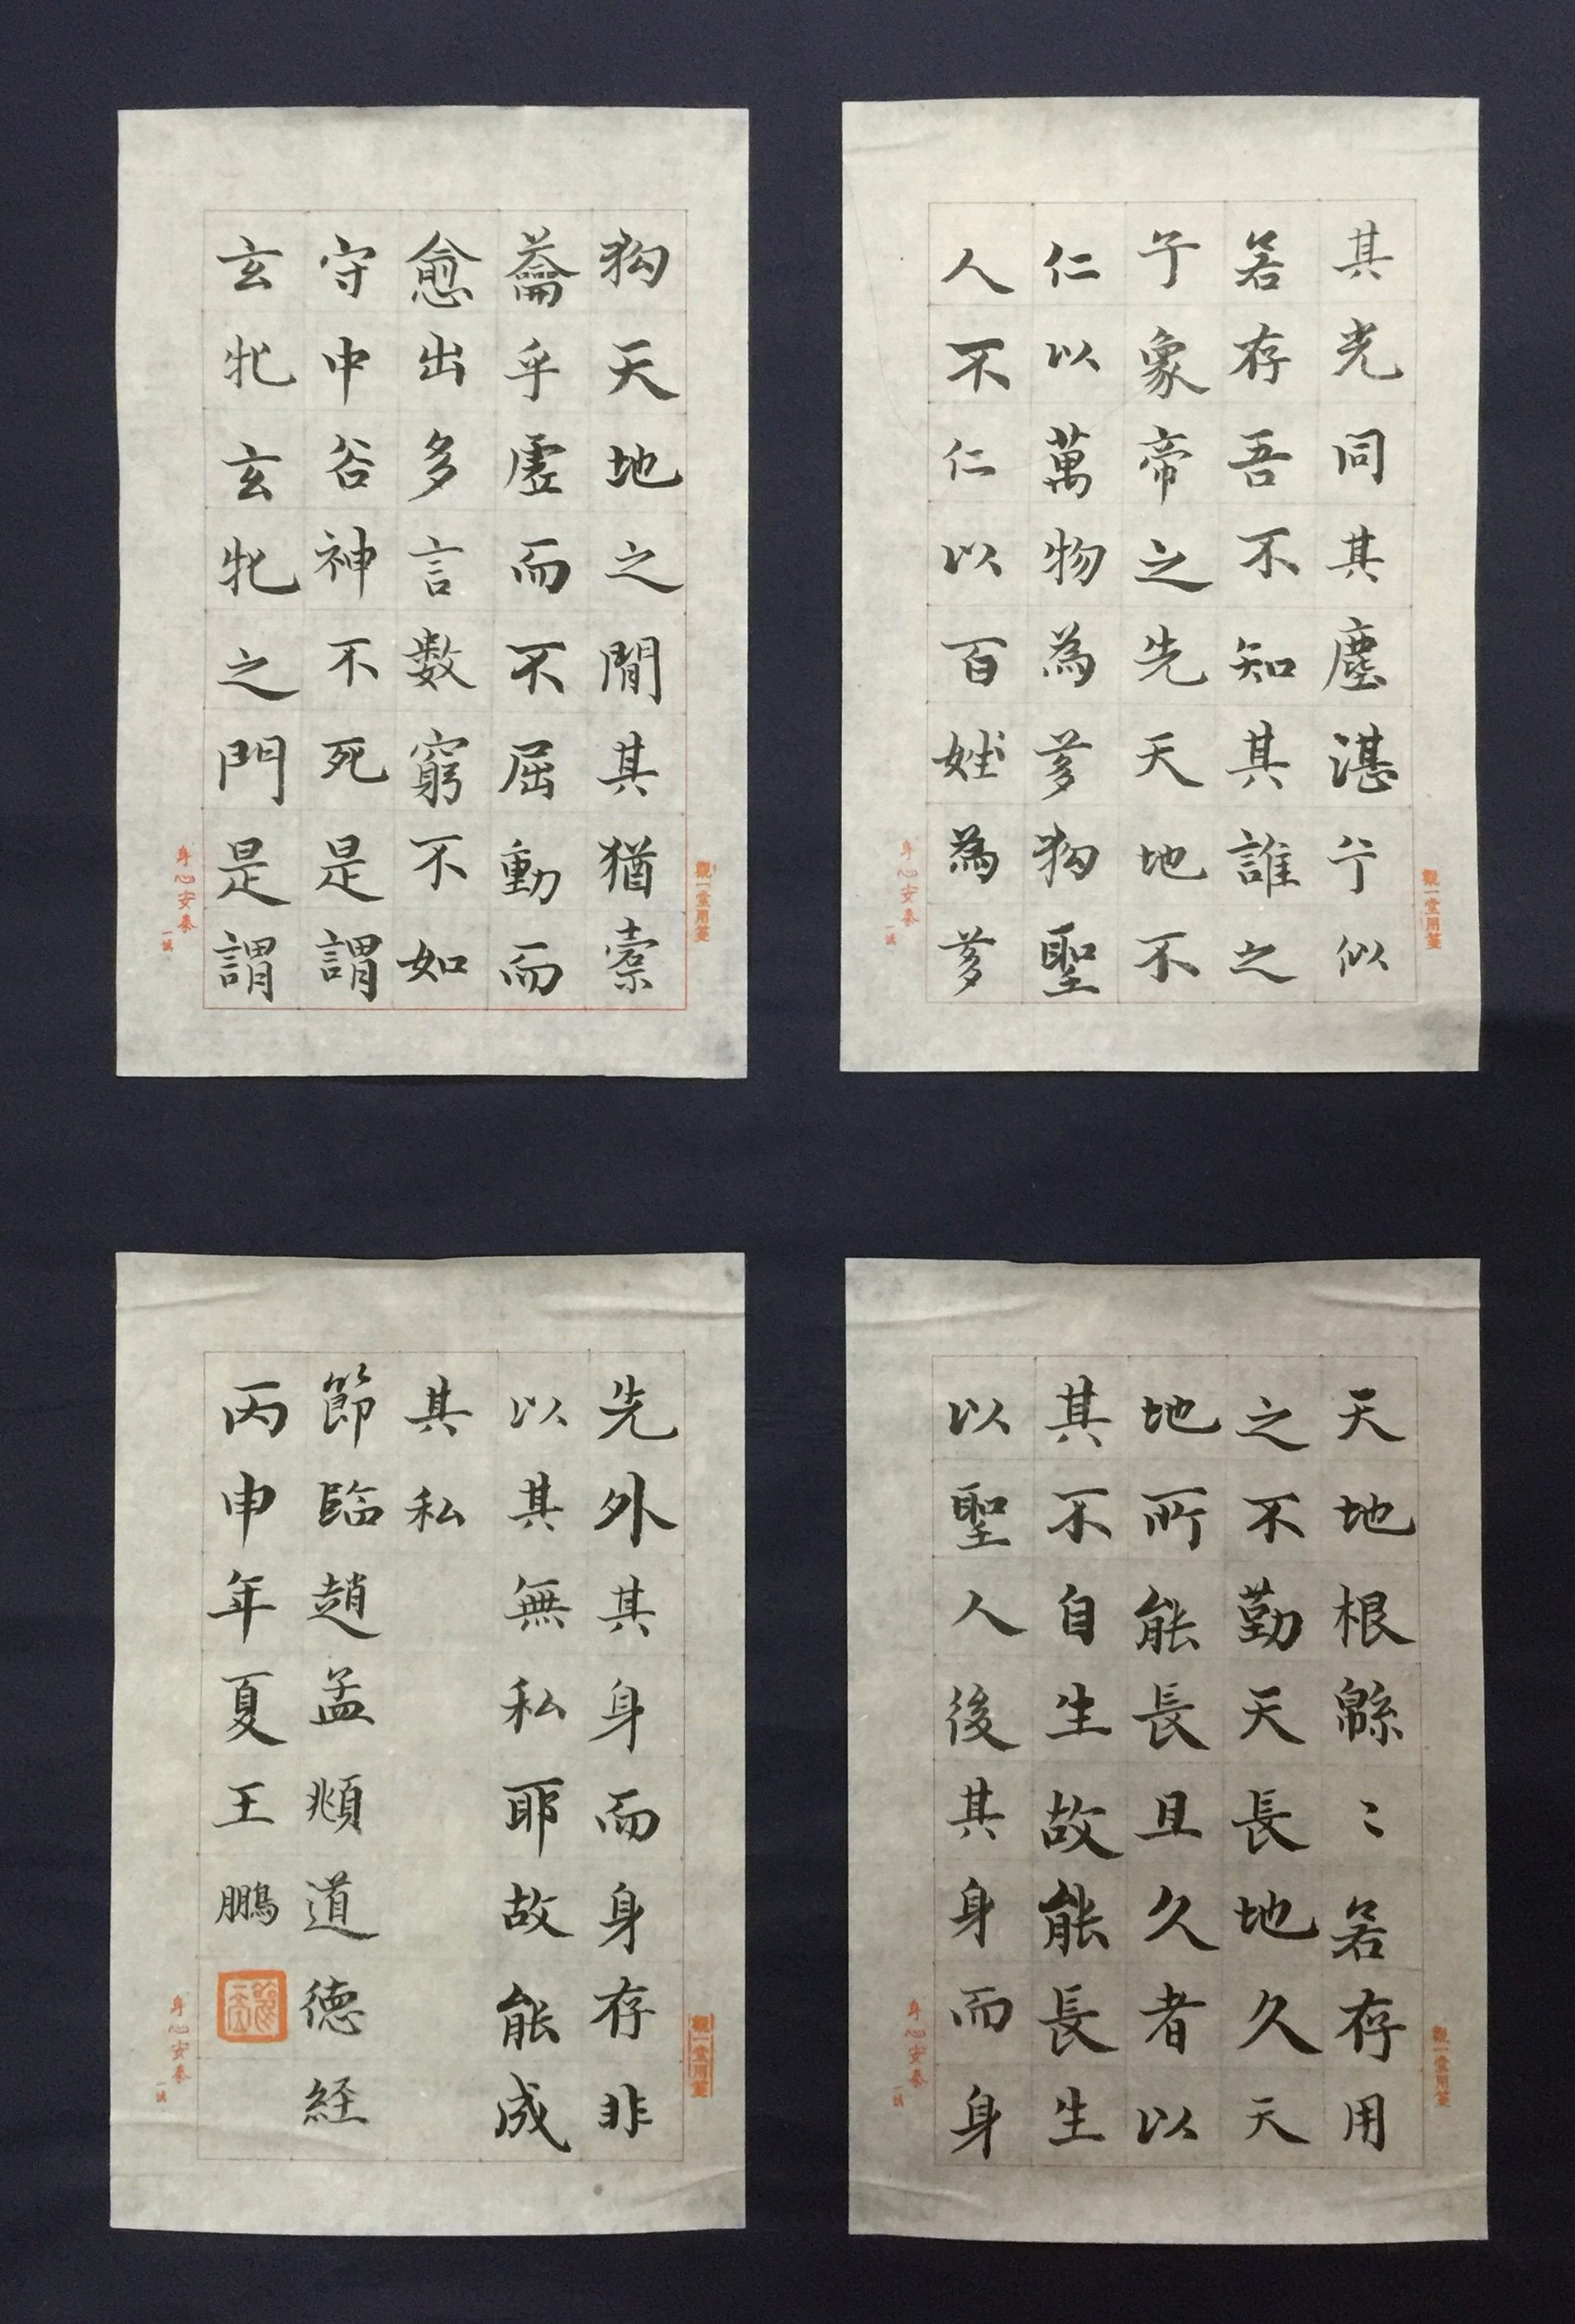 其光同其塵湛兮似
若存吾不知其誰之
子象帝之先天地不
仁以萬物為芻狗聖
人不仁以百姓為芻
觀一堂用箋
身心安泰
狗天地之間其猶橐
籥乎虛而不屈動而
愈出多言數窮不如
守中谷神不死是謂
玄牝玄牝之門是謂
觀一堂用箋
身心安泰
天地根綿〻若存用
之不勤天長地久天
地所能長且久者以
其不自生故能長生
以聖人後其身而身
觀一堂用箋
身心安泰
先外其身而身存非
以其無私耶故能成
其私
節臨趙孟頫道德経
丙申年夏王鵬
觀一堂用箋
身心安泰